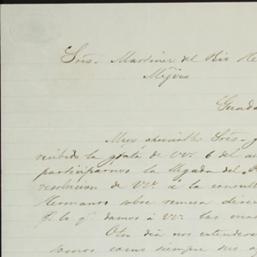 Sres. Martinez del Rio He
Méjico
Guada
Muy apreciables Sres. y
recibido la grata de VV. 6 del a
participarnos la llegada del
resolucion de VV. a la consult
Hermanos sobre remesa
damos á VV. las mas
Otro dia nos entendere
somos como siempre sus a